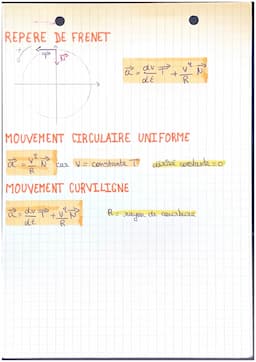 REPERE DE FRENET
T⃗ N⃗
a⃗ = dv/dt T⃗ + v²/R N⃗
MOUVEMENT CIRCULAIRE UNIFORME
a⃗ = v²/R N⃗ car V = constante dérivé constante = 0
MOUVEMENT CURVILIGNE
a⃗ = dv/dt T⃗ + v²/R N⃗ R = rayon de courbure